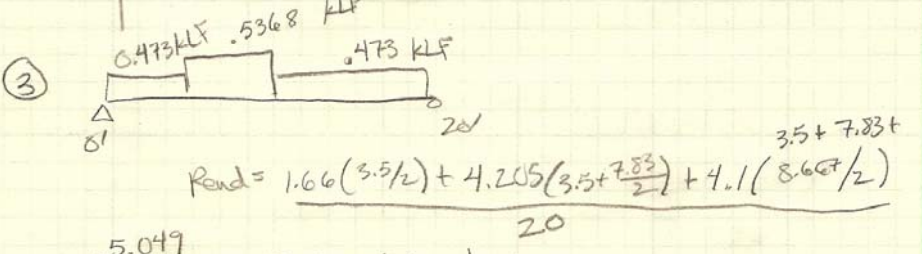 0.473 KLF .5368 KLF .473 KLF
3
0' 20'
3.5 + 7.83 +
Rend = 1.66(3.5/2) + 4.205(3.5+7.83/2) + 4.1(8.667/2)
20
5.049